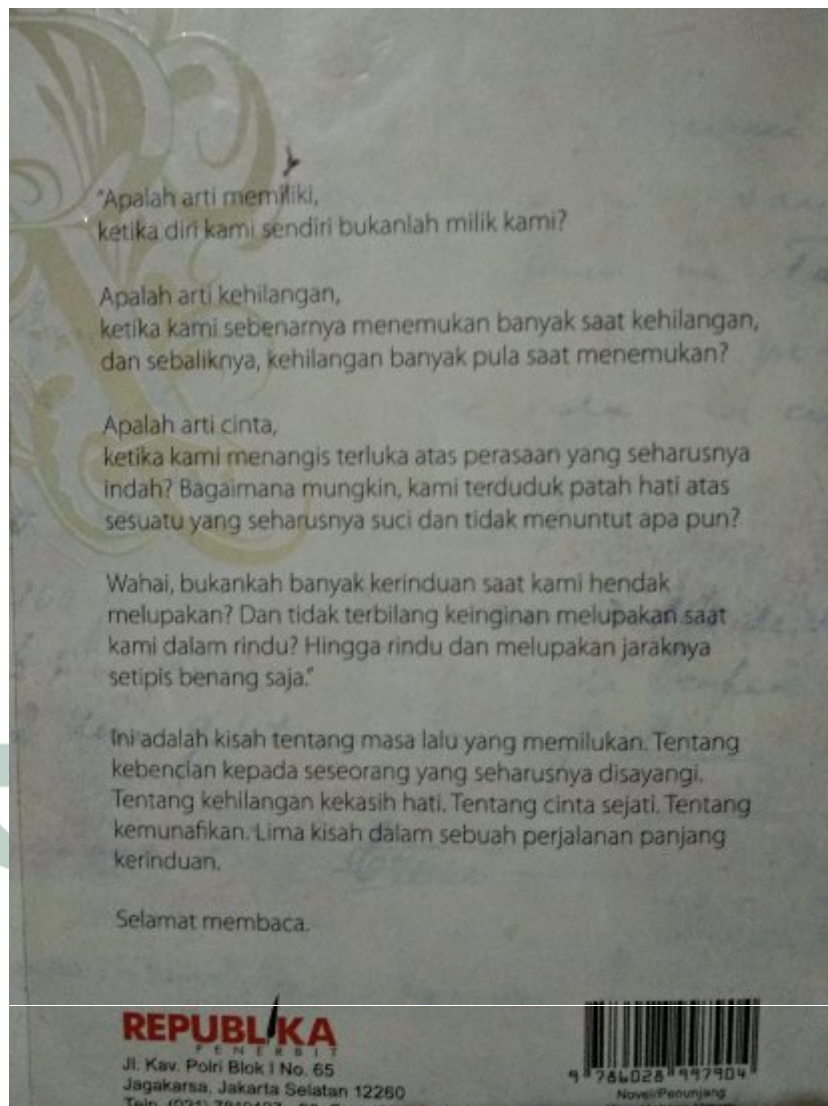 "Apalah arti memiliki,
ketika diri kami sendiri bukanlah milik kami?
Apalah arti kehilangan,
ketika kami sebenarnya menemukan banyak saat kehilangan,
dan sebaliknya, kehilangan banyak pula saat menemukan?
Apalah arti cinta,
ketika kami menangis terluka atas perasaan yang seharusnya
indah? Bagaimana mungkin, kami terduduk patah hati atas
sesuatu yang seharusnya suci dan tidak menuntut apa pun?
Wahai, bukankah banyak kerinduan saat kami hendak
melupakan? Dan tidak terbilang keinginan melupakan saat
kami dalam rindu? Hingga rindu dan melupakan jaraknya
setipis benang saja."
Ini adalah kisah tentang masa lalu yang memilukan. Tentang
kebencian kepada seseorang yang seharusnya disayangi.
Tentang kehilangan kekasih hati. Tentang cinta sejati. Tentang
kemunafikan. Lima kisah dalam sebuah perjalanan panjang
kerinduan.
Selamat membaca.
REPUBLIKA
PENERBIT
Jl. Kav. Polri Blok I No. 65
Jagakarsa, Jakarta Selatan 12260
9 786028 997904
Novel/Penunjang